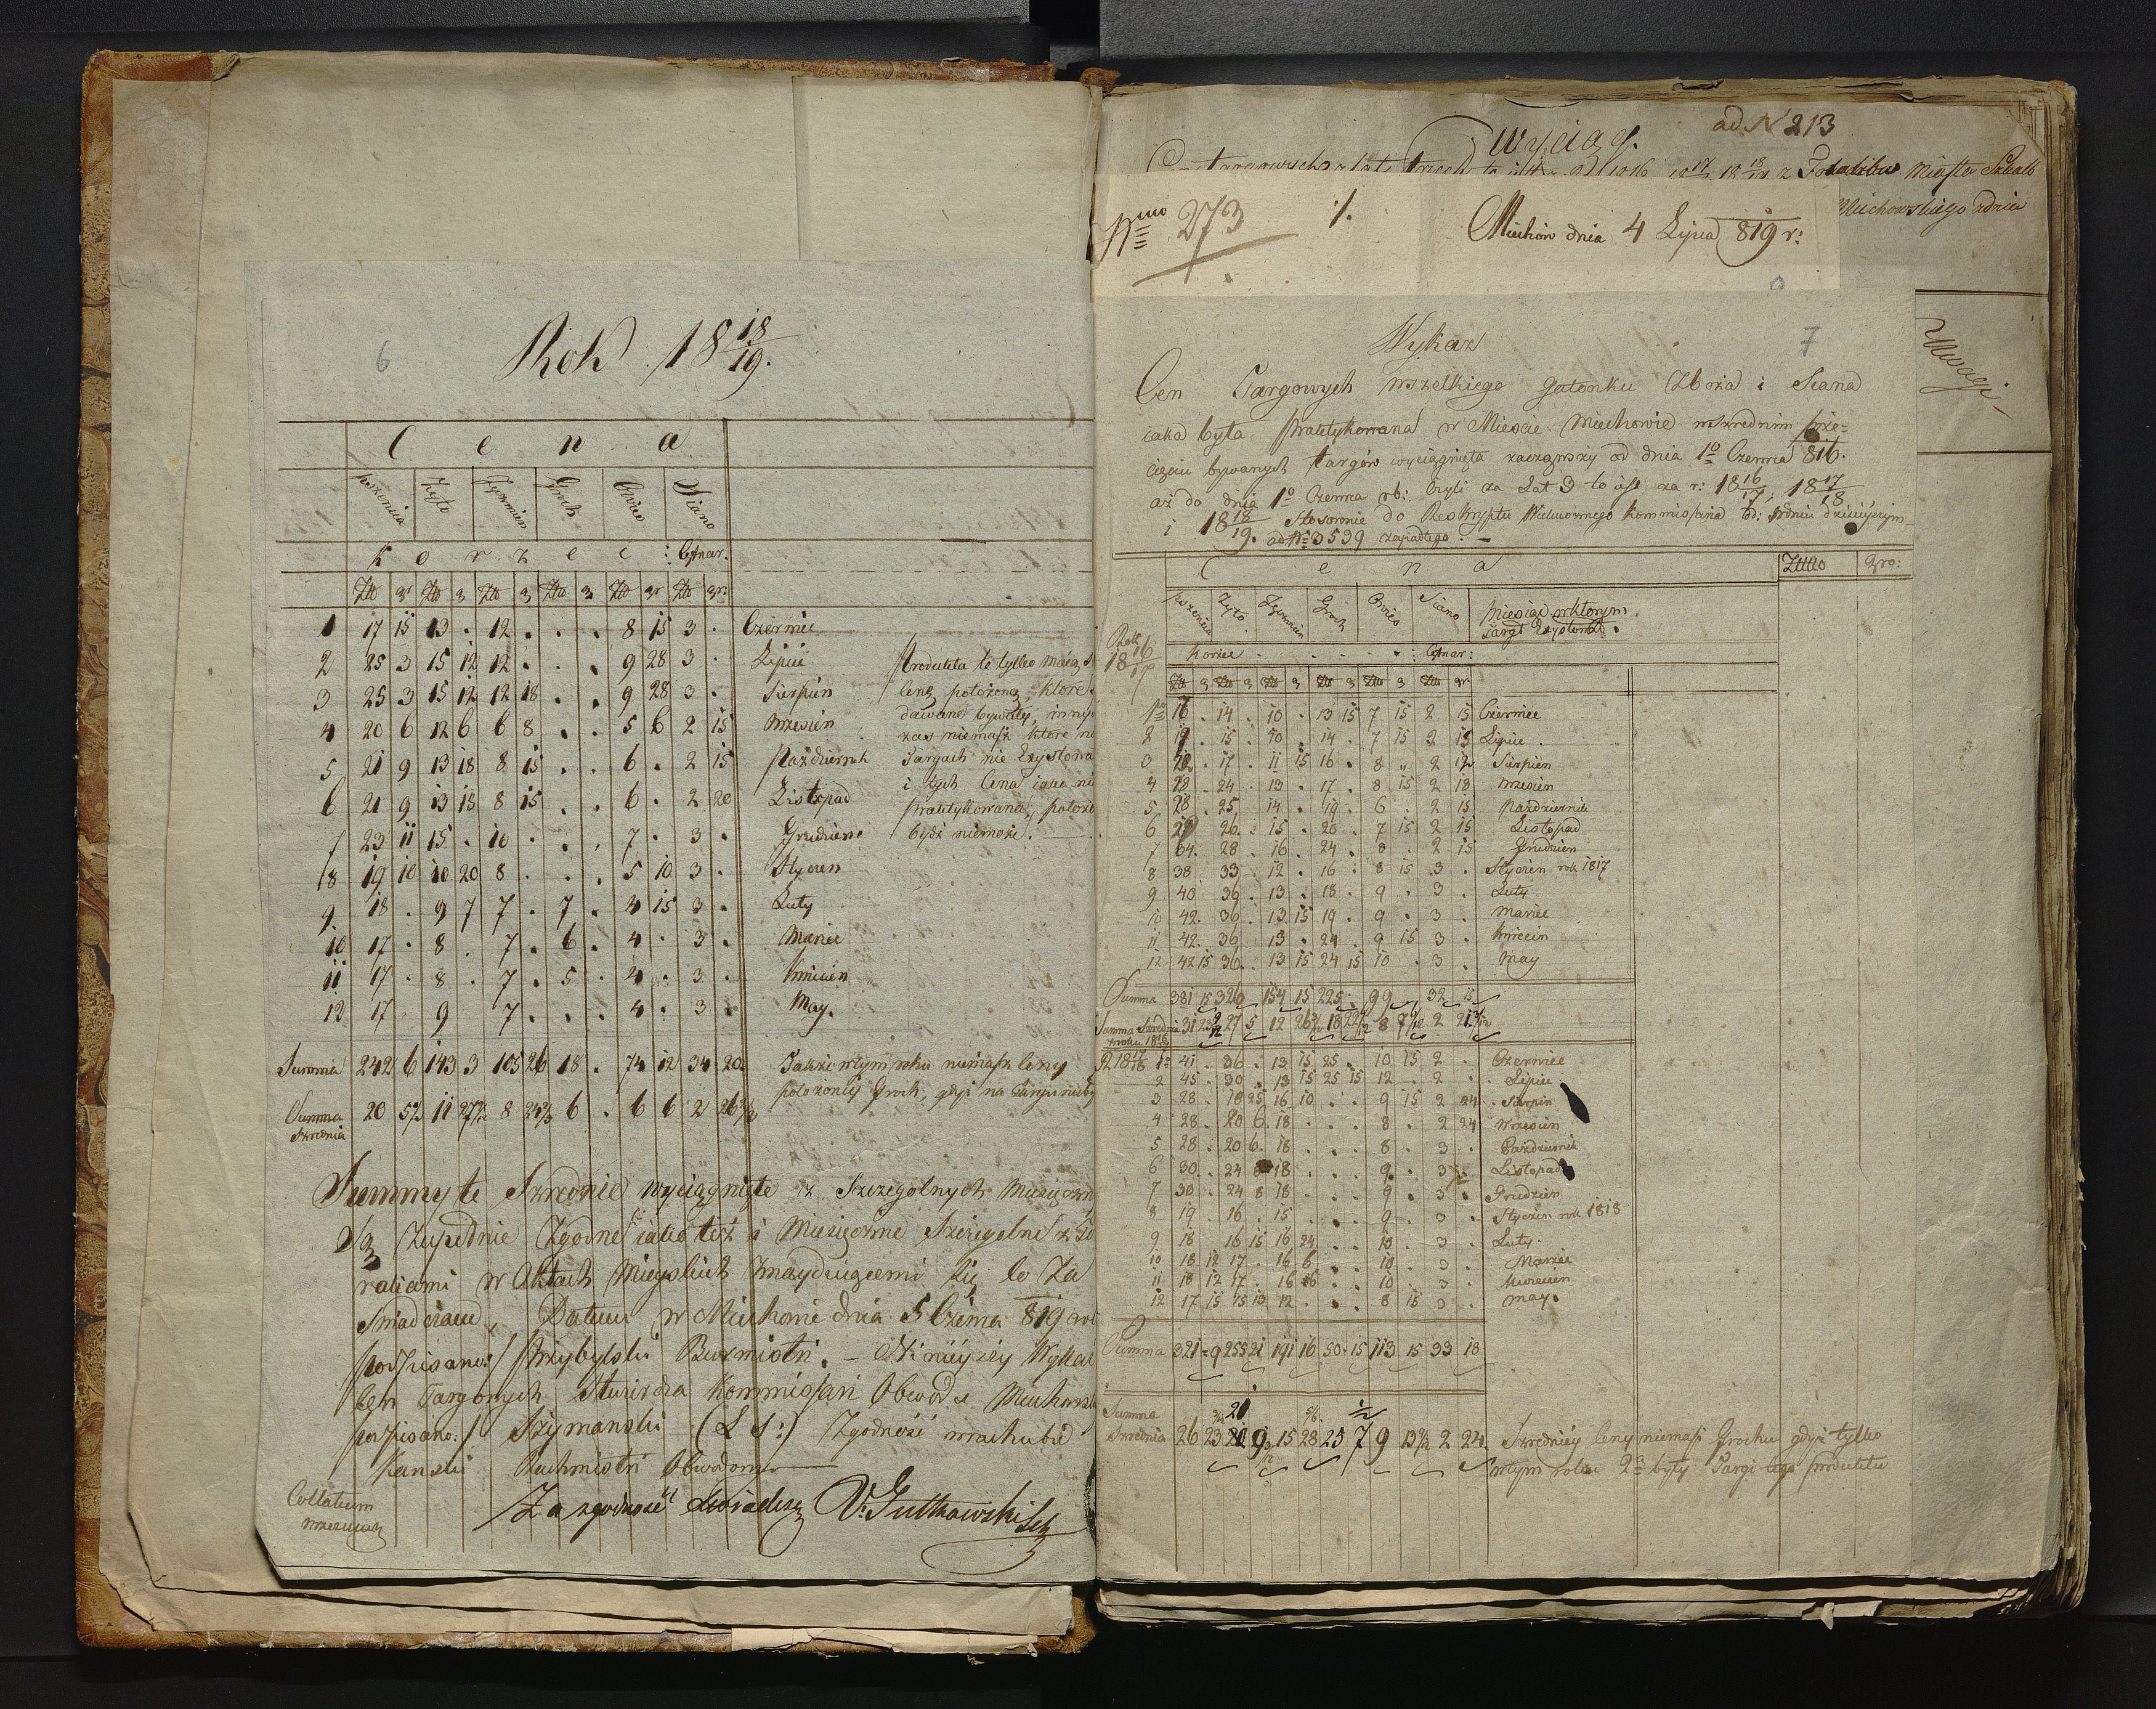 6
Rok 18 18/19.
C e n a
pszenica Żyto Jęczmień Groch Owies Siano
K o r z e c : Cetnar:
Złło gr Złło g Złło g Złło g Złło gr Złło gr:
1 17 15 13 . 12 . . . 8 15 3 . Czerwiec
2 25 3 15 12 12 . . . 9 28 3 . Lipiec
3 25 3 15 12 12 18 . . 9 28 3 . Sierpień
4 20 6 12 6 6 8 . . 5 6 2 15 Wrzesień
5 21 9 13 18 8 15 . . 6 . 2 15 Październik
6 21 9 13 18 8 15 . . 6 . 2 20 Listopad
7 23 11 15 . 10 . . . 7 . 3 . Grudzień
8 19 10 10 20 8 . . . 5 10 3 . Styczeń
9 18 . 9 7 7 . 7 . 4 15 3 . Luty
10 17 . 8 . 7 . 6 . 4 . 3 . Marzec
11 17 . 8 . 7 . 5 . 4 . 3 . Kwiecień
12 17 . 9 7 . . . 4 . 3 . May.
Produkta te tylko maią
Cenę położoną, które
dawane bywały, innych
zaś niemasz które na
Targach nie Exystowa
i tych Cena iako nie
praktykowana, położo
bydź niemoże.
Summa 242 6 143 3 105 26 18 . 74 12 34 20. Także w tym roku niemasz Ceny
położoney Groch, gdyż na Targu nieby
Summa Szrednia 20 5 1/2 11 27 7/12 8 24 2/3 6 . 6 6 2 26 2/3
Summy te Szrednie wyciągnięte z Szczególnych Miesięczn
Są Zupełnie Zgodne iako też i Miesięczne Szczegulne z Ta
raxami w Aktach Mieyskich znayduiącemi się Co Za
świadczam, Datum w Miechowie dnia 5 Czerwca 819 ro
podpisano:/ Przybylski Burmistrz. – Ninieyszy Wykaz
Cen Targowych stwierdza Kommissarz Obwodu Miechowsk
podpisano:/ Szymański (L S:) Zgodność w rachubie
Rachmistrz Obwodowy
Collatum
Za zgodność świadczę V: Gutkowski Sek
ad N 213
Wyciąg.
Miasta Skalb
Miechowskiego z dnia
Uwagi
Nmo 273 ./. Miechów dnia 4 Lipca 819 r:
7
Wykaz
Cen Targowych wszelkiego gatonku Zboża i Siana
iaka była Praktykowana w Mieście Miechowie w szrednim prze=
cięciu bywanych targów wyciągnięta zacząwszy od dnia 1o Czerwca 816.
aż do dnia 1o Czerwca rb: Czyli za Lat 3 to iest za r: 18 16/17, 18 17/18
i 18 18/19. Stosownie do Reskryptu Wielmożnego Kommissarza Ob: z dniu dzisieyszym
ad No 3539 zapadłego. –
C e n a Złłlo Gro:
pszenica Żyto Jęczmień Groch Owies Siano Miesiąc w którym
targi Exystował.
Rok 18 16/17
Korzec . . . . . : Cetnar:
Złło g Złło g Złło g Złło g Złło g Złło gr
1o 16 . 14 . 10 . 13 15 7 15 2 15 Czerwiec
2 19 . 15 . 10 . 14 . 7 15 2 15 Lipiec .
3 . 17 . 11 15 16 . 8 „ 2 12 Sierpień
4 28 . 24 . 13 . 17 . 8 15 2 18 Wrzesień
5 28 . 25 . 14 . 19 . 6 . 2 15 Październik
6 29 . 26 . 15 . 20 . 7 15 2 15 Listopad
7 34 . 28 . 16 . 24 . 8 . 2 15 Grudzień
8 38 . 33 . 12 . 16 . 8 15 3 . Styczeń rok 1817
9 40 . 36 . 13 . 18 . 9 . 3 . Luty
10 42 . 36 . 13 15 19 . 9 . 3 . Marzec
11 42 . 36 . 13 . 24 . 9 15 3 . Kwiecień
12 42 15 36 . 13 15 24 15 10 . 3 . May
Summa 381 15 326 . 154 15 225 . 99 . 32 15
Summa Szrednia z roku 1816 31 23 9/12 27 5 12 26 18 22 8 7 6/12 2 21 3/12
R 18 17/18 1o 41 . 36 . 13 15 25 . 10 15 2 . Czerwiec
2 45 . 30 . 13 15 25 15 12 . 2 . Lipiec
3 28 . 18 25 16 10 . . 9 15 2 24 Sierpień
4 28 . 20 6 18 . . . 8 . 2 24 Wrzesień
5 28 . 20 6 18 . . . 8 . 3 . Październik
6 30 . 24 8 18 . . . 9 . 3 . Listopad
7 30 . 24 8 18 . . . 9 . 3 . Grudzień
8 19 . 16 . 15 . . . 9 . 3 . Styczeń rok 1818
9 18 . 16 15 16 24 . . 10 . 3 . Luty.
10 18 12 17 . 16 6 . . 10 . 3 . Marzec
11 18 12 17 . 16 6 . . 10 . 3 . Kwiecień
12 17 15 15 13 12 . . . 8 15 3 . May.
Summa 321 9 255 21 191 16 50 15 113 15 33 18
Summa Szrednia 26 23 3/12 21 9 9/12 15 28 5/6 25 7 1/2 9 13 9/12 2 24 Szredniey Ceny niemasz Grochu gdyż tylko
w tym roku 2a były Targi tego produktu